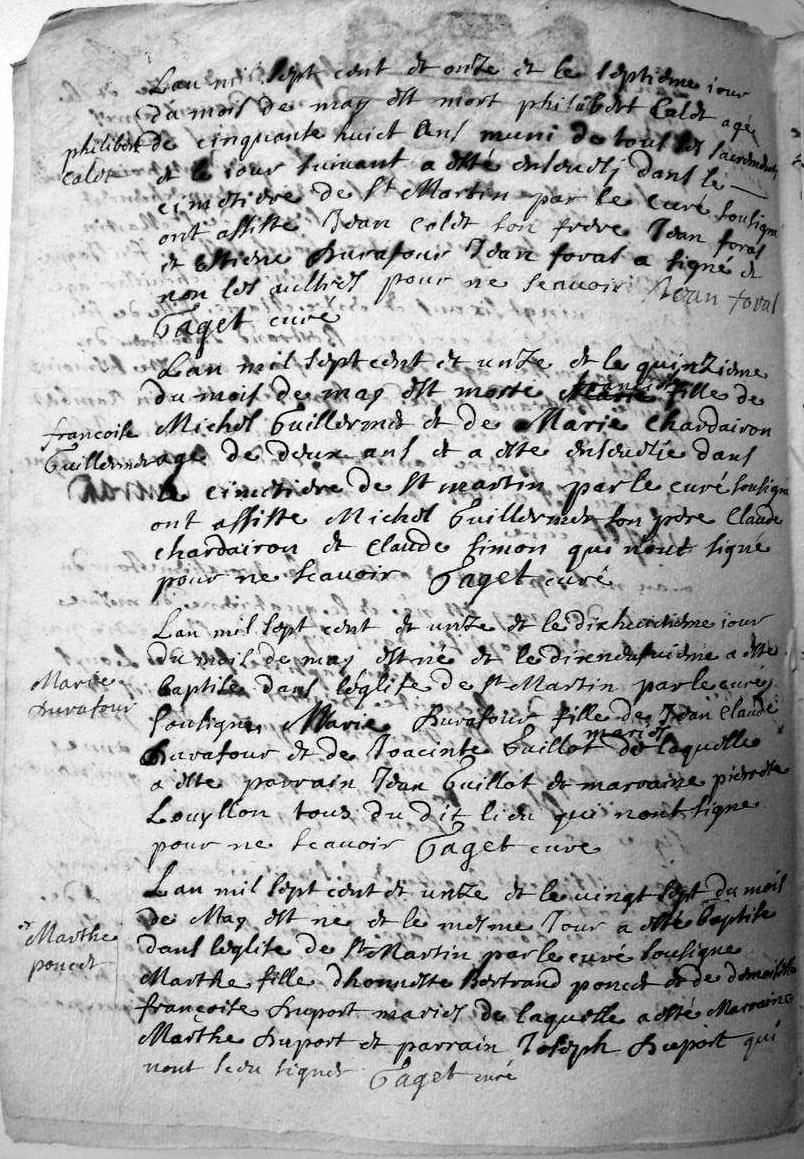 Lan mil sept cent et onze et le septieme iour
du mois de may est mort philibert Calet agé
philibert Calet
de cinquante huict Ans muni de tous les sacrements
et le iour suivant a esté enseveli dans le
cimetiere de St Martin par le curé sousigné
ont assisté Jean Calet son frere Jean foras
et Estiene Durafour Jean foras a signé et
non les aultres pour ne scavoir Jean foras
Taget curé
Lan mil sept cent et unze et le quinzieme
du mois de may est morte francoise fille de
Michel Guillermet et de Marie Chardairon
francoise
Guillermet
age de deux ans et a este ensevelie dans
le cimetiere de St martin par le curé sousigné
ont assisté Michel Guillermet son pere Claude
chardairon et Claude simon qui nont signé
pour ne scavoir Taget curé
Lan mil sept cent et unze et le dixhuictieme iour
du mois de may est né et le dixneufuieme a este
Marie
Durafour
baptisee dans leglise de St Martin par le curé
sousigne Marie Durafour fille de Jean Claude
Durafour et de Joacinte Guillot mariés de laquelle
a este parrain Jean Guillot et marraine pierrette
Louyllon tous du dit lieu qui nont signe
pour ne scavoir Taget curé
Lan mil sept cent et unze et le vingt sept du mois
de May est ne et le mesme Jour a esté baptise
Marthe
poncet
dans leglise de St Martin par le curé sousigne
Marthe fille dhonneste Bertrand poncet et de demoiselle
francoise Duport mariés de laquelle a esté Marraine
Marthe Duport et parrain Joseph Duport qui
nont sceu signer Taget curé